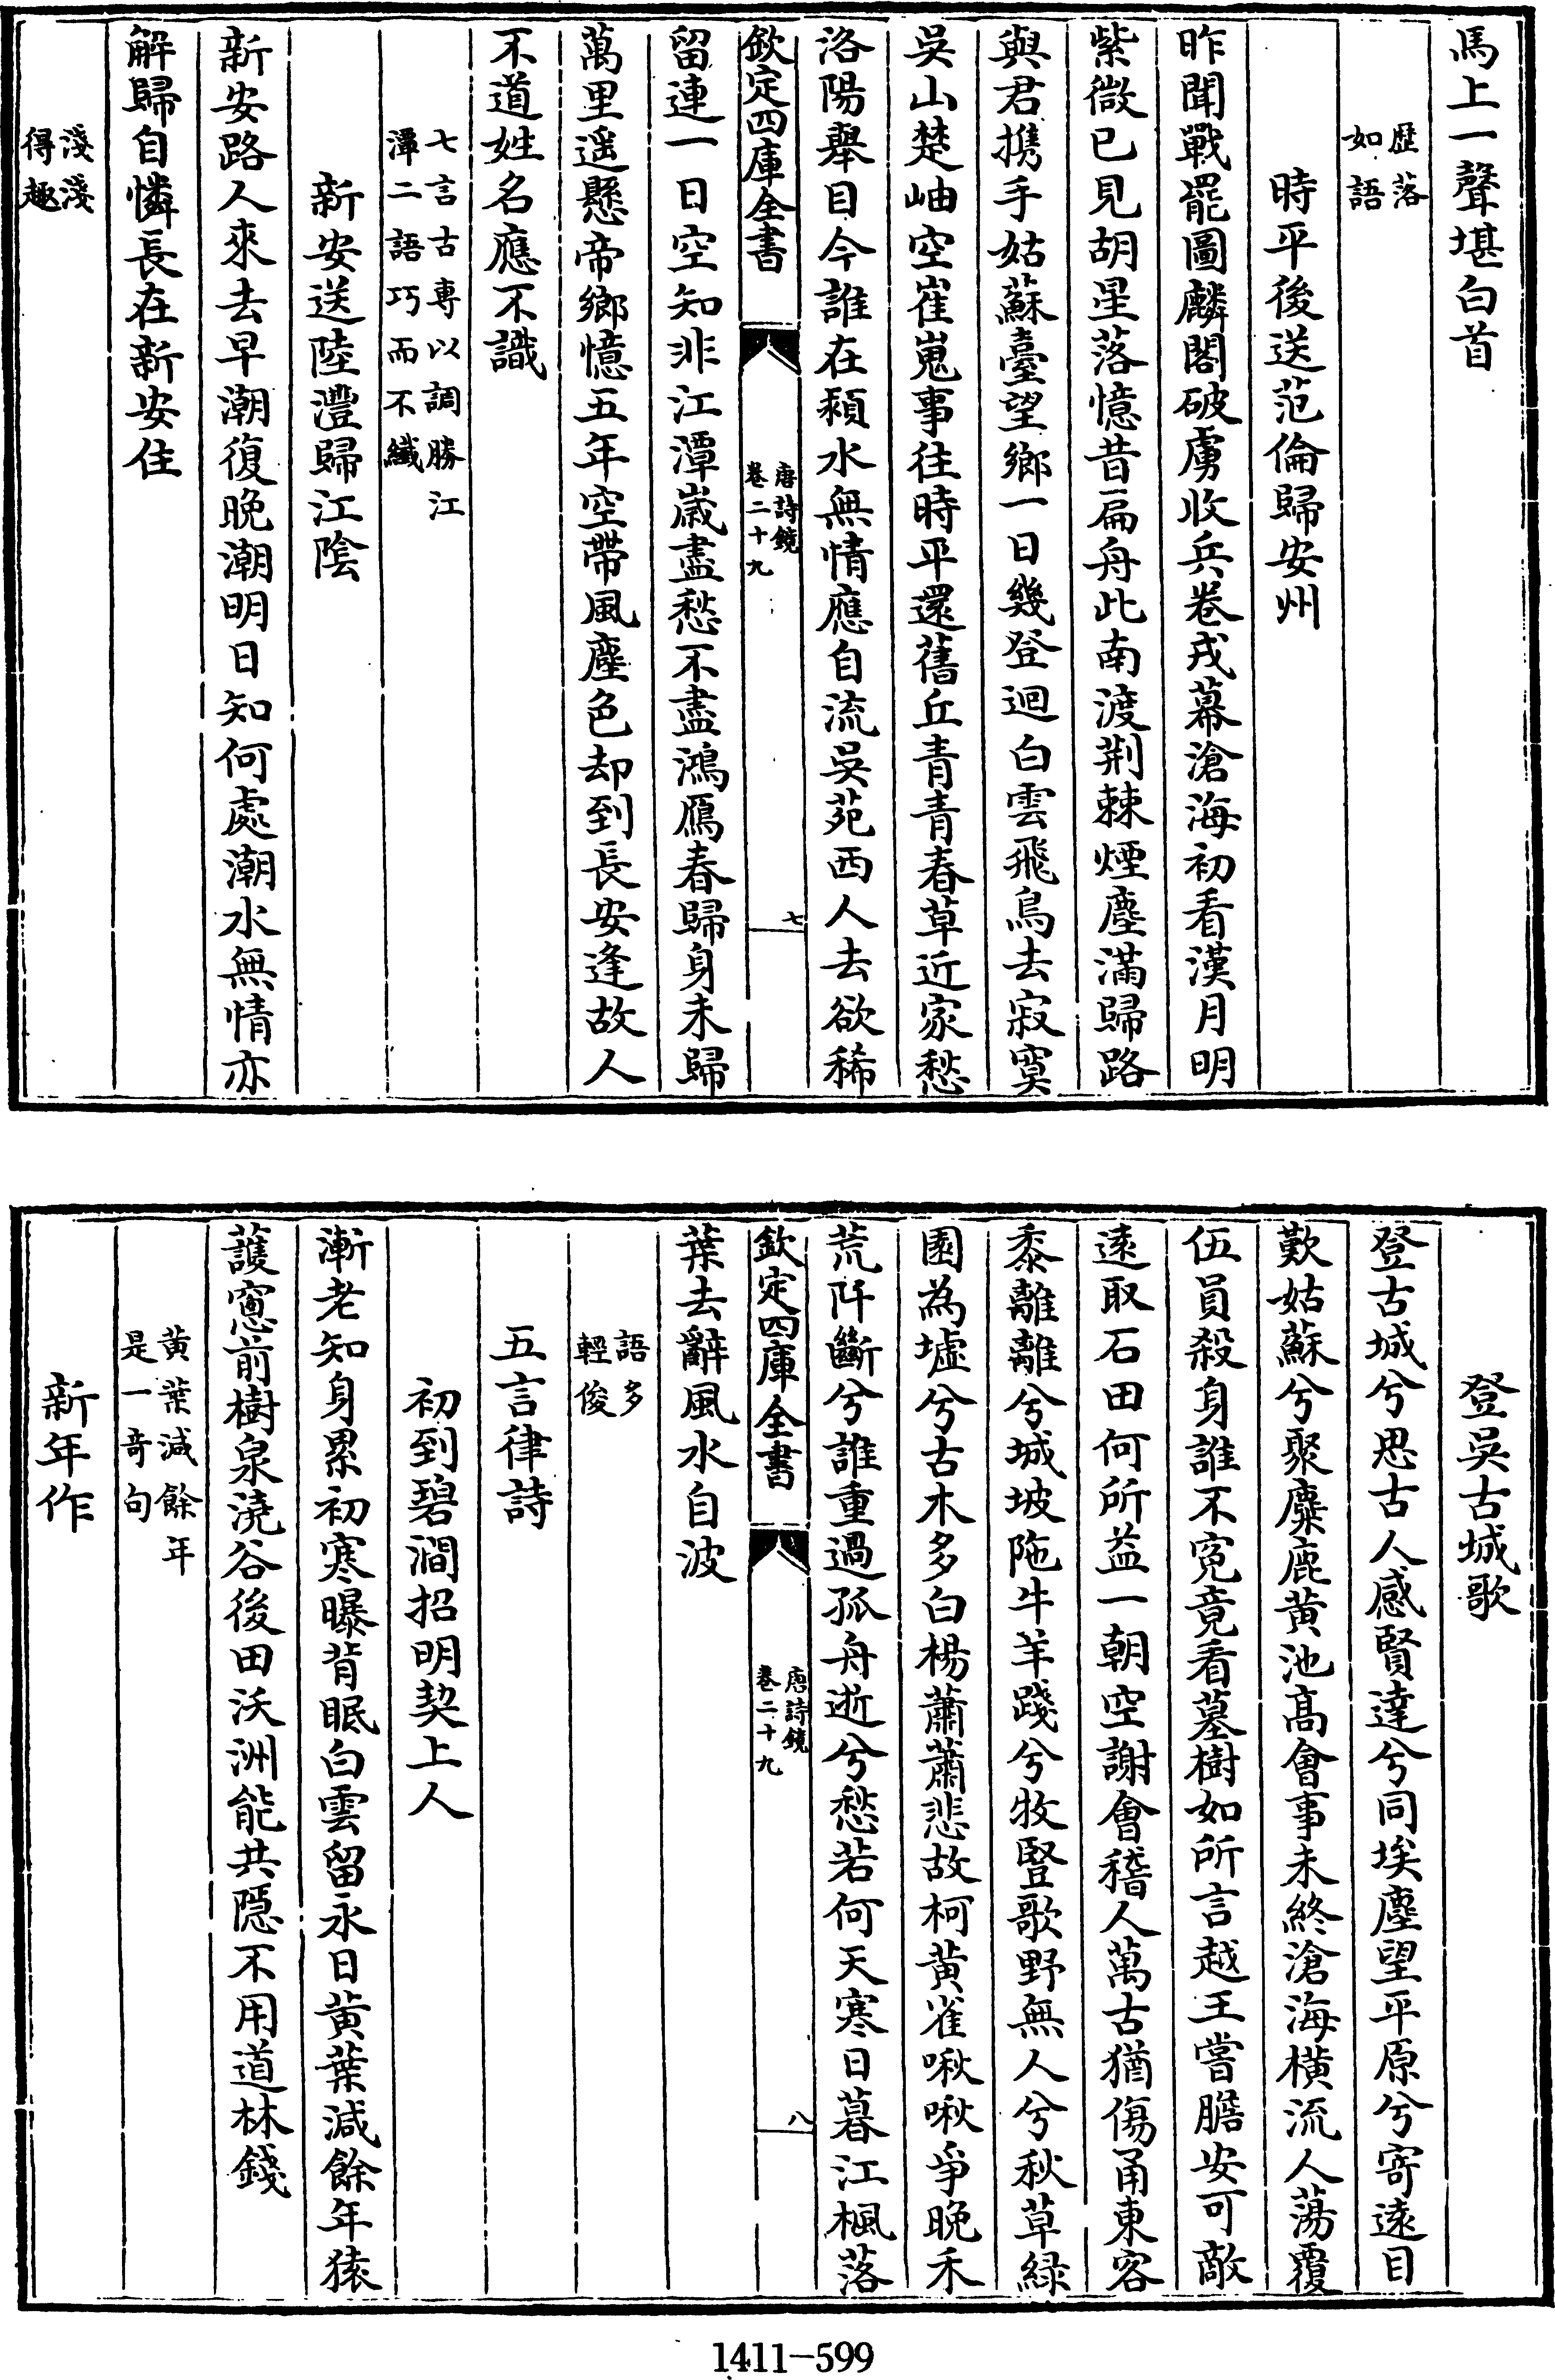 馬上一聲堪白首
歴落
如語
時平後送范倫歸安州
昨聞戰罷圖麟閣破虜收兵卷戎幕滄海初看漢月明
紫微已見胡星落憶昔扁舟此南渡荆棘煙塵滿歸路
與君携手姑蘇臺望鄉一日幾登迴白雲飛鳥去寂寞
吳山楚岫空崔嵬事往時平還舊丘青青春草近家愁
洛陽舉目今誰在潁水無情應自流吳苑西人去欲稀
欽定四庫全書
唐詩鏡
卷二十九
七
留連一日空知非江潭歲盡愁不盡鴻鴈春歸身未歸
萬里遥懸帝鄉憶五年空帶風塵色却到長安逢故人
不道姓名應不識
七言古專以調勝江
潭二語巧而不纎
新安送陸澧歸江陰
新安路人來去早潮復晚潮明日知何處潮水無情亦
解歸自憐長在新安住
淺淺
得趣
登吳古城歌
登古城兮思古人感賢達兮同埃塵望平原兮寄遠目
歎姑蘇兮聚麋鹿黄池髙會事未終滄海横流人蕩覆
伍員殺身誰不寃竟看墓樹如所言越王嘗膽安可敵
遠取石田何所益一朝空謝會稽人萬古猶傷甬東客
黍離離兮城坡陁牛羊踐兮牧豎歌野無人兮秋草緑
園為墟兮古木多白楊蕭蕭悲故柯黄雀啾啾爭晚禾
荒阡斷兮誰重過孤舟逝兮愁若何天寒日暮江楓落
欽定四庫全書
唐詩鏡
卷二十九
八
葉去辭風水自波
語多
輕俊
五言律詩
初到碧澗招明契上人
漸老知身累初寒曝背眠白雲留永日黄葉減餘年猿
護窓前樹泉澆谷後田沃洲能共隠不用道林錢
黄葉減餘年
是一竒句
新年作
1411-599